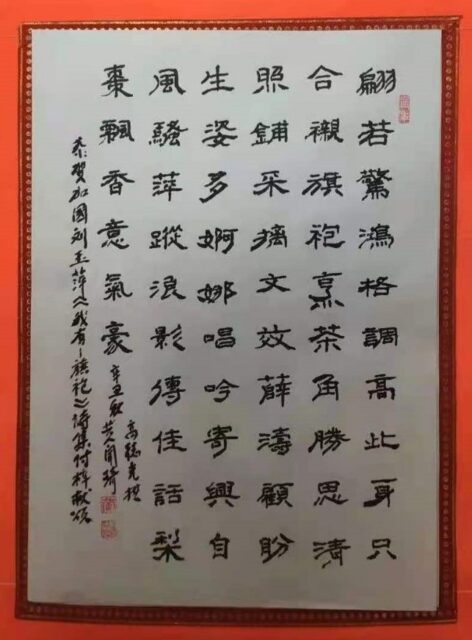 翩若驚鴻格調高此身只
合襯旗袍烹茶角勝思清
照鋪采摛文效薛濤顧盼
生姿多婀娜唱吟寄興自
風騷萍蹤浪影傳佳話梨
棗飄香意氣豪
辛丑秋
恭賀加國刘玉萍《我有一旗袍》诗集付梓献颂